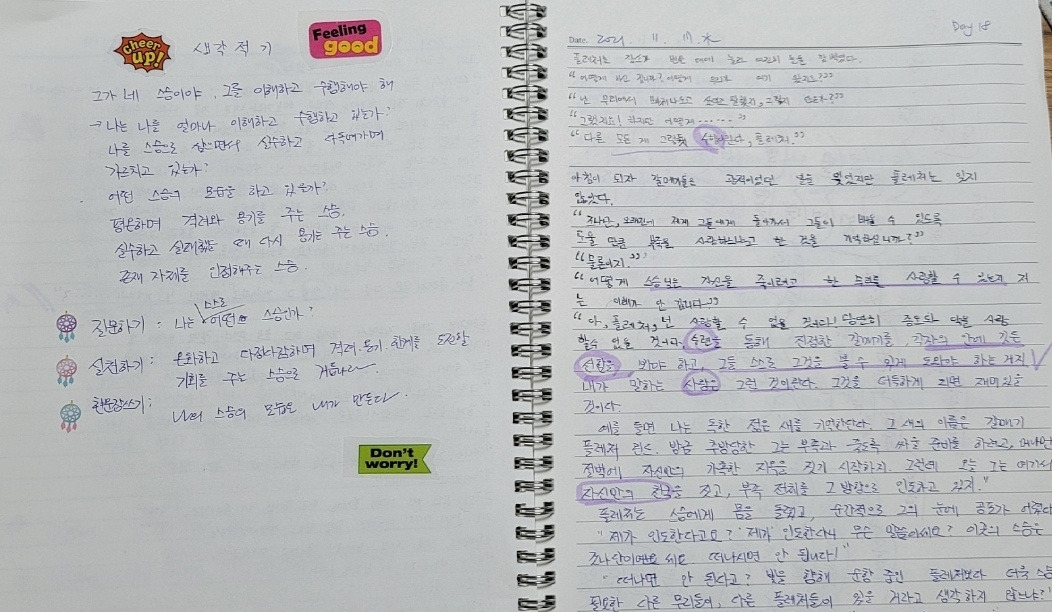 cheer up!
생각적기
Feeling good
그가 네 스승이야. 그를 이해하고 수행해야 해
→ 나는 나를 얼마나 이해하고 수행하고 있는가?
나를 스승으로 삼으면서 실수하고 다독여가며
가르치고 있는가?
어떤 스승의 모습을 하고 있는가?
평온하며 격려와 용기를 주는 스승.
실수하고 실패했을 때 다시 용기를 주는 스승.
존재 자체를 인정해주는 스승.
스스로
질문하기 : 나는 어떤 스승인가?
실천하기 : 온화하고 다정다감하며 격려·용기·한계를 도전할
기회를 주는 스승으로 거듭나다.
한문장쓰기 : 나의 스승의 모습은 내가 만든다.
Don't worry!
Day 18
Date. 2021. 11. 17. 水
플레처는 갈매기
"어떻게 하신 겁니까? 어떻게 우리가 여기 왔지요???"
"넌 우리에서 빠져나오고 싶다 말했지, 그렇지 않니?"
"그랬지요! 하지만 어떻게 ······"
"다른 모든 게 그렇듯 수행이란다, 플레처."
아침이 되자 갈매기들은 광적이었던 일을 잊었지만 플레처는 잊지
않았다.
"조나단, 오래전에 제게 그들에게 돌아가서 그들이 배울 수 있도록
도울 만큼 부족을 사랑하느냐고 한 것을 기억하십니까?"
"물론이지."
"어떻게 스승님은 자신을 죽이려고 한 무리를 사랑할 수 있는지 저
는 이해가 안 갑니다"
"아, 플레처, 넌 사랑할 수 없을 것이다! 당연히 증오와 악을 사랑
할 수 없을 것이다. 수련을 통해 진정한 갈매기를, 각자의 안에 깃든
선함을 봐야 하고, 그들 스스로 그것을 볼 수 있게 도와야 하는 거지
내가 말하는 사랑은 그런 것이란다. 그것을 터득하게 되면 재미있을
것이다.
예를 들면 나는 독한 젊은 새를 기억한단다. 그 새의 이름은 갈매기
플레처 린드. 방금 추방당한 그는 부족과 죽도록 싸울 준비를 하려고, 머나먼
절벽에 자신만의 가혹한 지옥을 짓기 시작하지. 그런데 오늘 그는 여기서
자신만의 천국을 짓고, 부족 전체를 그 방향으로 인도하고 있지."
플레처는 스승에게 몸을 돌렸고, 순간적으로 그의 눈에 공포가 어렸다
"제가 인도한다고요? 제가 인도한다니 무슨 말씀이세요? 이곳의 스승은
조나단이에요 떠나시면 안 됩니다!"
"떠나면 안 된다고? 빛을 향해 순항 중인 플레처보다 더욱 스승
필요한 다른 무리들이, 다른 플레처들이 있을 거라고 생각하지 않느냐?"